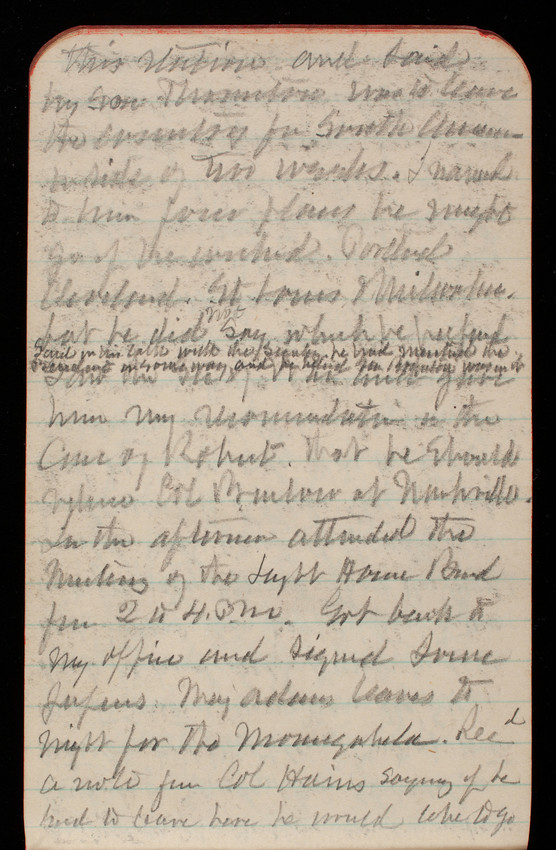 this station and said
my son Thornton would leave
the country for South Amer-
inside of two weeks. I named
to him four places he might
go if he wished. Portland
Cleveland. St Louis & Milwaukee.
but he did not say which he prefered
Said in his talk with the he had mentioned the
President in some way and he asked was in it
Saw the Secy gave
him my recommendation in the
Case of Robert. That he should
relieve Col Barlow at Nashville.
In the afternoon attended the
Meeting of the Light House Board
from 2 to 4. P.M. Got back to
my office and signed some
papers. Maj Adams leaves to
night for the Monongahela. Recd
a note from Col Hains saying if he
had to leave here he would like to go